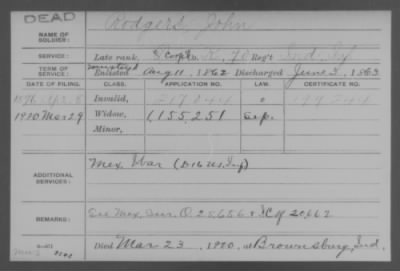 DEAD
NAME OF SOLDIER: Rodgers, John
SERVICE: Late rank, Corp Co. K, 70 Reg't Ind. Inf
TERM OF SERVICE: Enlisted Aug 11, 1862 Discharged June 3, 1863
DATE OF FILING. CLASS. APPLICATION NO. LAW. CERTIFICATE NO.
Invalid,
1920 Mar 29 Widow, 1155,251
Minor,
ADDITIONAL SERVICES: Mex. War (D 16 U.S. Inf)
REMARKS: See Mex. Sur. O. 25,656 & 20,662
Died Mar 23, 1920, at Brownsburg, Ind.